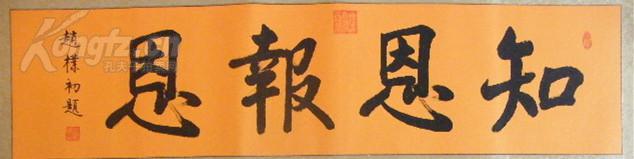 知恩報恩
趙樸初題
Kongfz.com
孔夫子旧书网